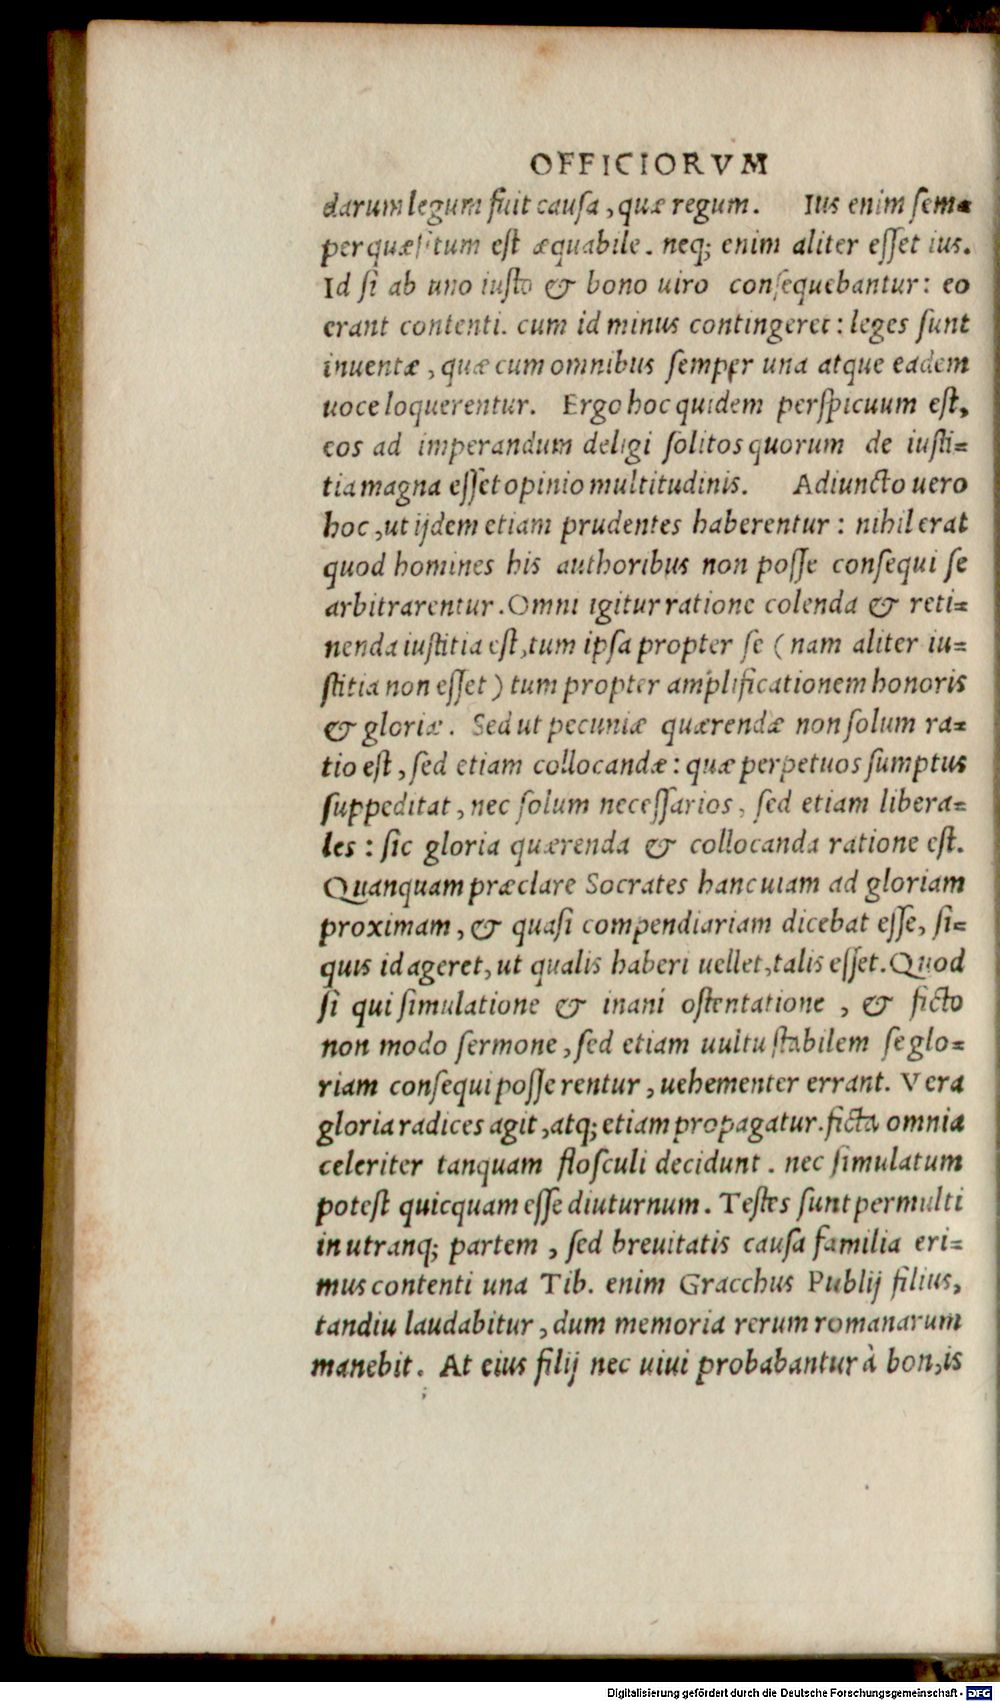 OFFICIORVM
darum legum fuit causa, quæ regum. Ius enim sem-
per quæsitum est æquabile. neq; enim aliter esset ius.
Id si ab uno iusto & bono uiro consequebantur: eo
erant contenti. cum id minus contingeret: leges sunt
inuentæ, quæ cum omnibus semper una atque eadem
uoce loquerentur. Ergo hoc quidem perspicuum est,
eos ad imperandum deligi solitos quorum de iusti=
tia magna esset opinio multitudinis. Adiuncto uero
hoc, ut ijdem etiam prudentes haberentur: nihil erat
quod homines his authoribus non posse consequi se
arbitrarentur. Omni igitur ratione colenda & reti=
nenda iustitia est, tum ipsa propter se (nam aliter iu=
stitia non esset) tum propter amplificationem honoris
& gloriæ. Sed ut pecuniæ quærendæ non solum ra=
tio est, sed etiam collocandæ: quæ perpetuos sumptus
suppeditat, nec solum necessarios, sed etiam libera=
les: sic gloria quærenda & collocanda ratione est.
Quanquam præclare Socrates hanc uiam ad gloriam
proximam, & quasi compendiariam dicebat esse, si=
quis id ageret, ut qualis haberi uellet, talis esset. Quod
si qui simulatione & inani ostentatione, & ficto
non modo sermone, sed etiam uultu stabilem se glo=
riam consequi posse rentur, uehementer errant. Vera
gloria radices agit, atq; etiam propagatur. ficta omnia
celeriter tanquam flosculi decidunt. nec simulatum
potest quicquam esse diuturnum. Testes sunt permulti
in utranq; partem, sed breuitatis causa familia eri=
mus contenti una Tib. enim Gracchus Publij filius,
tandiu laudabitur, dum memoria rerum romanarum
manebit. At eius filij nec uiui probabantur à bon,is
Digitalisierung gefördert durch die Deutsche Forschungsgemeinschaft - DFG